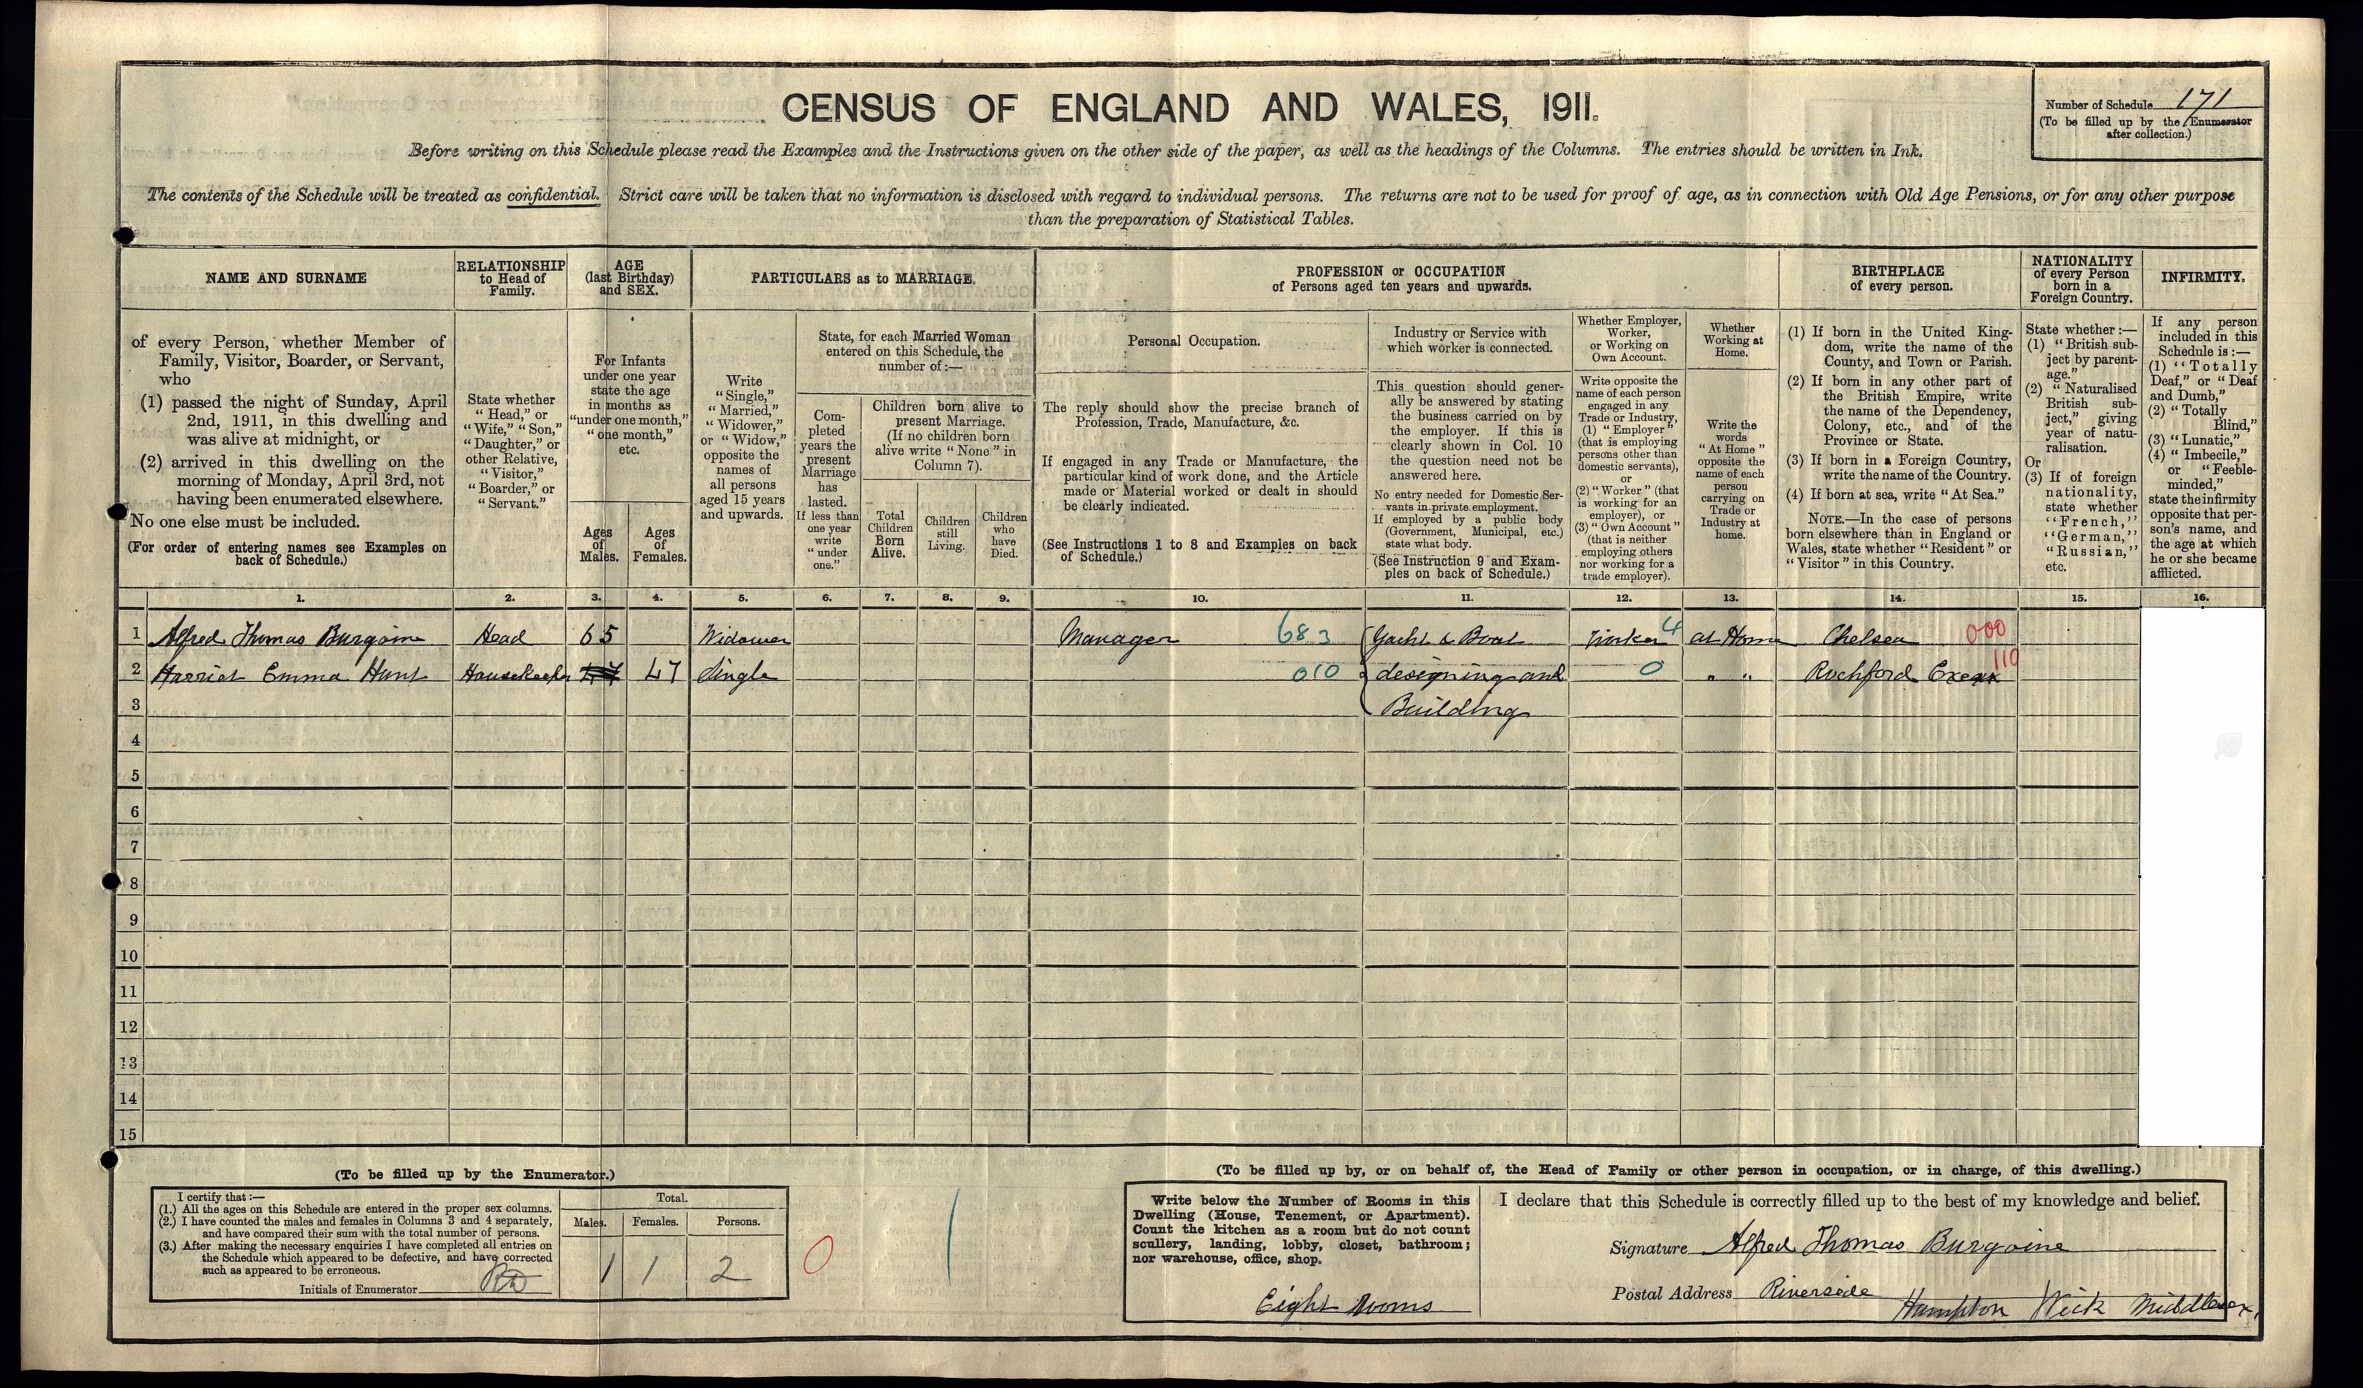 CENSUS OF ENGLAND AND WALES, 1911.
Number of Schedule 171
(To be filled up by the Enumerator
after collection.)
Before writing on this Schedule please read the Examples and the Instructions given on the other side of the paper, as well as the headings of the Columns. The entries should be written in Ink.
The contents of the Schedule will be treated as confidential. Strict care will be taken that no information is disclosed with regard to individual persons. The returns are not to be used for proof of age, as in connection with Old Age Pensions, or for any other purpose
than the preparation of Statistical Tables.
NAME AND SURNAME
of every Person, whether Member of
Family, Visitor, Boarder, or Servant,
who
(1) passed the night of Sunday, April
2nd, 1911, in this dwelling and
was alive at midnight, or
(2) arrived in this dwelling on the
morning of Monday, April 3rd, not
having been enumerated elsewhere.
No one else must be included.
(For order of entering names see Examples on
back of Schedule.)
RELATIONSHIP
to Head of
Family.
State whether
"Head," or
"Wife," "Son,"
"Daughter," or
other Relative,
"Visitor,"
"Boarder," or
"Servant."
AGE
(last Birthday)
and SEX.
For Infants
under one year
state the age
in months as
"under one month,"
"one month,"
etc.
Ages
of
Males.
Ages
of
Females.
PARTICULARS as to MARRIAGE.
Write
"Single,"
"Married,"
"Widower,"
or "Widow,"
opposite the
names of
all persons
aged 15 years
and upwards.
State, for each Married Woman
entered on this Schedule, the
number of:—
Com-
pleted
years the
present
Marriage
has
lasted.
If less than
one year
write
"under
one."
Children born alive to
present Marriage.
(If no children born
alive write "None" in
Column 7).
Total
Children
Born
Alive.
Children
still
Living.
Children
who
have
Died.
PROFESSION or OCCUPATION
of Persons aged ten years and upwards.
Personal Occupation.
The reply should show the precise branch of
Profession, Trade, Manufacture, &c.
If engaged in any Trade or Manufacture, the
particular kind of work done, and the Article
made or Material worked or dealt in should
be clearly indicated.
(See Instructions 1 to 8 and Examples on back
of Schedule.)
Industry or Service with
which worker is connected.
This question should gener-
ally be answered by stating
the business carried on by
the employer. If this is
clearly shown in Col. 10
the question need not be
answered here.
No entry needed for Domestic Ser-
vants in private employment.
If employed by a public body
(Government, Municipal, etc.)
state what body.
(See Instruction 9 and Exam-
ples on back of Schedule.)
Whether Employer,
Worker,
or Working on
Own Account.
Write opposite the
name of each person
engaged in any
Trade or Industry,
(1) "Employer"
(that is employing
persons other than
domestic servants),
or
(2) "Worker" (that
is working for an
employer), or
(3) "Own Account"
(that is neither
employing others
nor working for a
trade employer).
Whether
Working at
Home.
Write the
words
"At Home"
opposite the
name of each
person
carrying on
Trade or
Industry at
home.
BIRTHPLACE
of every person.
(1) If born in the United King-
dom, write the name of the
County, and Town or Parish.
(2) If born in any other part of
the British Empire, write
the name of the Dependency,
Colony, etc., and of the
Province or State.
(3) If born in a Foreign Country,
write the name of the Country.
(4) If born at sea, write "At Sea."
NOTE.—In the case of persons
born elsewhere than in England or
Wales, state whether "Resident" or
"Visitor" in this Country.
NATIONALITY
of every Person
born in a
Foreign Country.
State whether:—
(1) "British sub-
ject by parent-
age."
(2) "Naturalised
British sub-
ject," giving
year of natu-
ralisation.
Or
(3) If of foreign
nationality,
state whether
"French,"
"German,"
"Russian,"
etc.
INFIRMITY.
If any person
included in this
Schedule is:—
(1) "Totally
Deaf," or "Deaf
and Dumb,"
(2) "Totally
Blind,"
(3) "Lunatic,"
(4) "Imbecile,"
or "Feeble-
minded,"
state the infirmity
opposite that per-
son's name, and
the age at which
he or she became
afflicted.
1. 2. 3. 4. 5. 6. 7. 8. 9. 10. 11. 12. 13. 14. 15. 16.
1 Alfred Thomas Burgoine Head 65 Widower Manager 683 Yacht & Boat Worker 4 at Home Chelsea 000
2 Harriet Emma Hunt Housekeeper 47 47 Single 010 designing and 0 " " Rochford Essex 110
3 Building
4
5
6
7
8
9
10
11
12
13
14
15
(To be filled up by the Enumerator.)
I certify that:—
(1.) All the ages on this Schedule are entered in the proper sex columns.
(2.) I have counted the males and females in Columns 3 and 4 separately,
and have compared their sum with the total number of persons.
(3.) After making the necessary enquiries I have completed all entries on
the Schedule which appeared to be defective, and have corrected
such as appeared to be erroneous.
Initials of Enumerator
Total.
Males. Females. Persons.
1 1 2
0
(To be filled up by, or on behalf of, the Head of Family or other person in occupation, or in charge, of this dwelling.)
Write below the Number of Rooms in this
Dwelling (House, Tenement, or Apartment).
Count the kitchen as a room but do not count
scullery, landing, lobby, closet, bathroom;
nor warehouse, office, shop.
Eight Rooms
I declare that this Schedule is correctly filled up to the best of my knowledge and belief.
Signature Alfred Thomas Burgoine
Postal Address Riverside
Hampton Wick Middlesex.